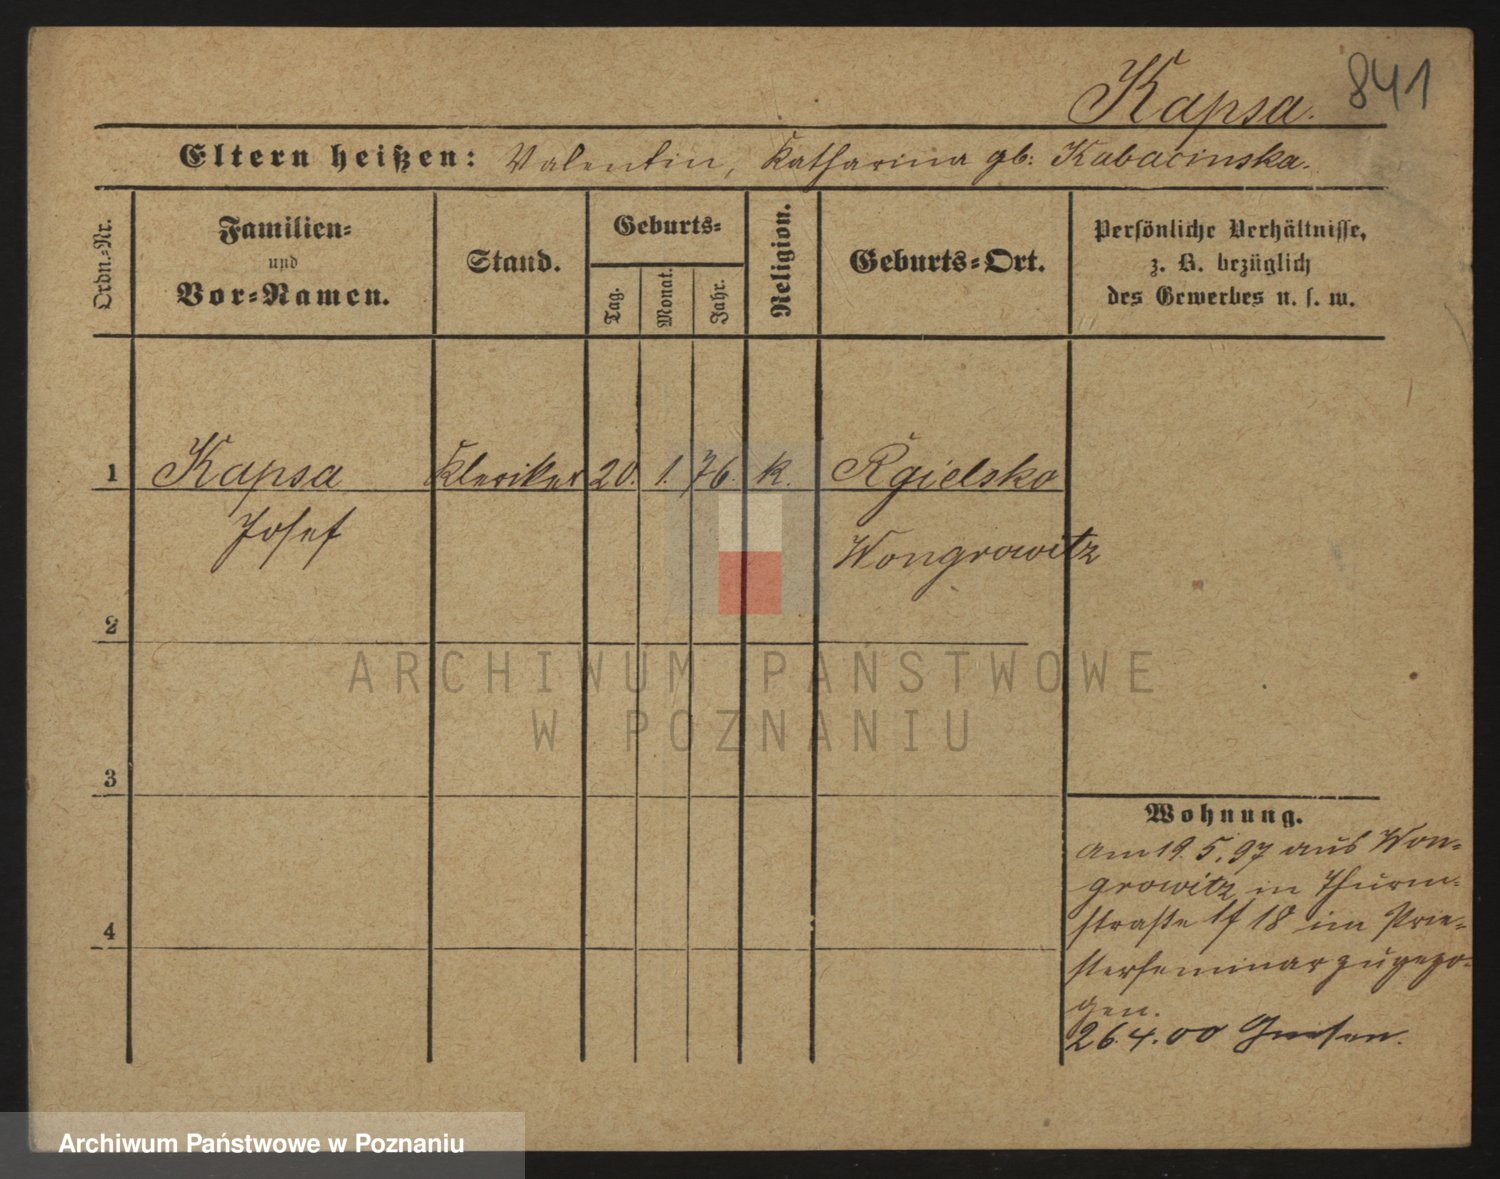 841
Kapsa.
Eltern heißen: Valentin, Katharina gb: Kabacinska.
Ordn.-Nr.
Familien-
und
Vor-Namen.
Stand.
Geburts-
Tag.
Monat.
Jahr.
Religion.
Geburts-Ort.
Persönliche Verhältnisse,
z. B. bezüglich
des Gewerbes u. s. w.
1 Kapsa Kleriker 20. 1. 76. k. Rgielsko
Josef
Wongrowitz
2
3
4
Wohnung.
am 19. 5. 97 aus Won-
growitz in Thurm-
straße 17/18 im Prie-
sterseminar zugezo-
gen.
26.4.00 Gnesen.
ARCHIWUM PAŃSTWOWE
W POZNANIU
Archiwum Państwowe w Poznaniu